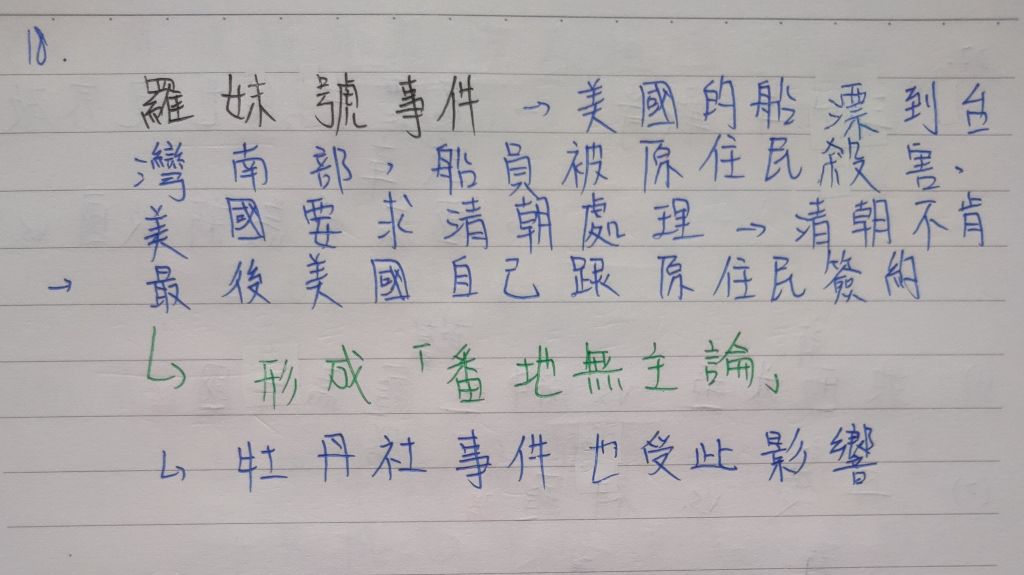 18.
羅妹號事件→美國的船漂到台
灣南部,船員被原住民殺害、
美國要求清朝處理→清朝不肯
→最後美國自己跟原住民簽約
↳形成「番地無主論」
↳牡丹社事件也受此影響